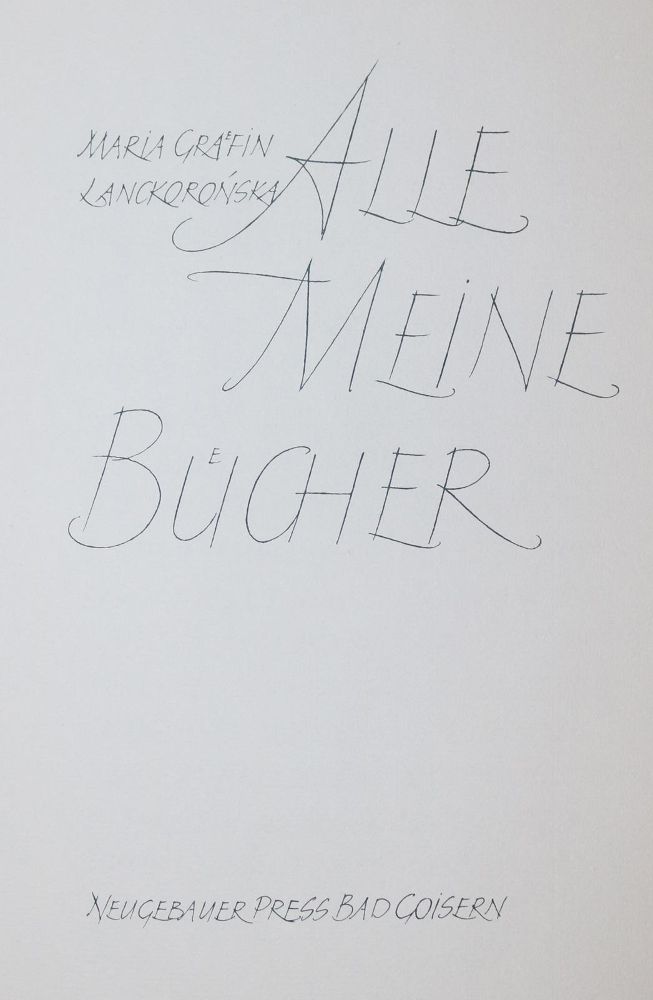 MARiA GRAͤFiN
LANCKOROŃSKA
ALLE
MEiNE
BUͤCHER
NEUGEBAUER PRESS BAD GOiSERN